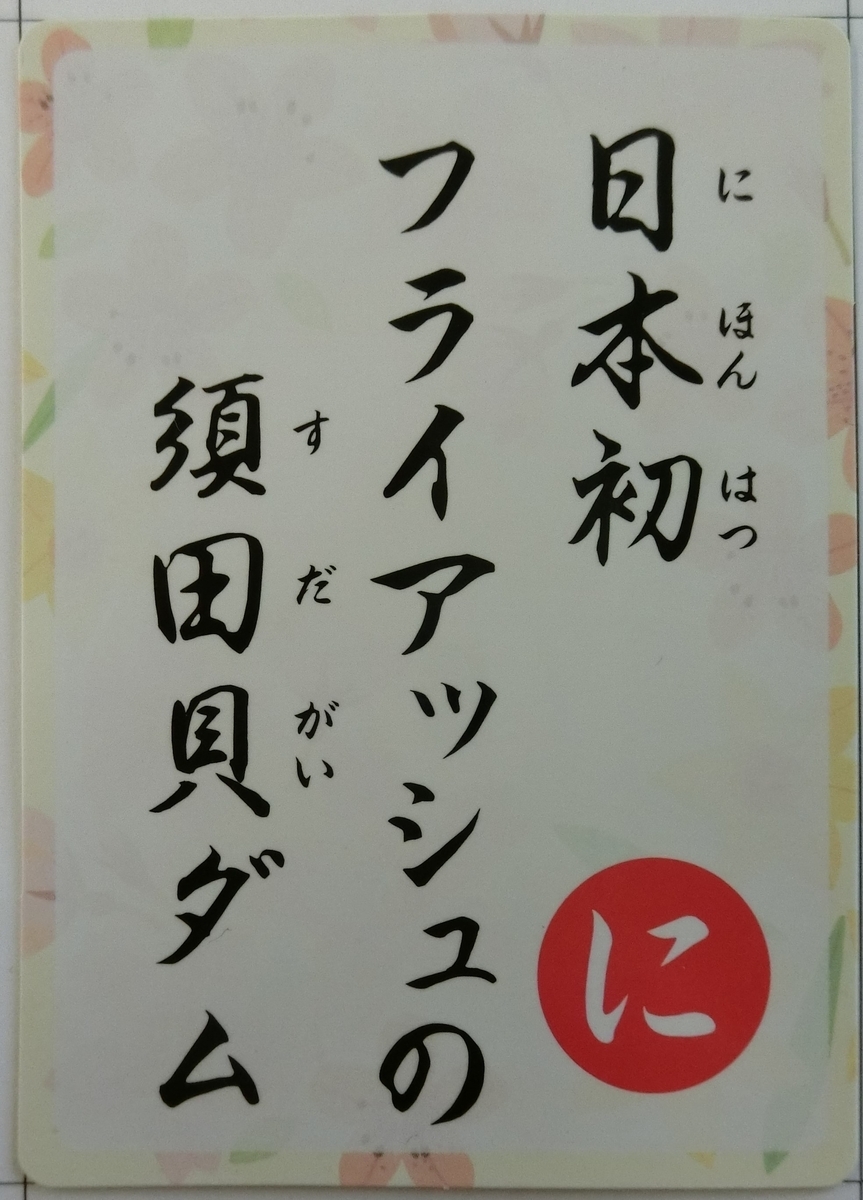 日本初
にほんはつ
フライアッシュの
須田貝ダム
すだがい
に